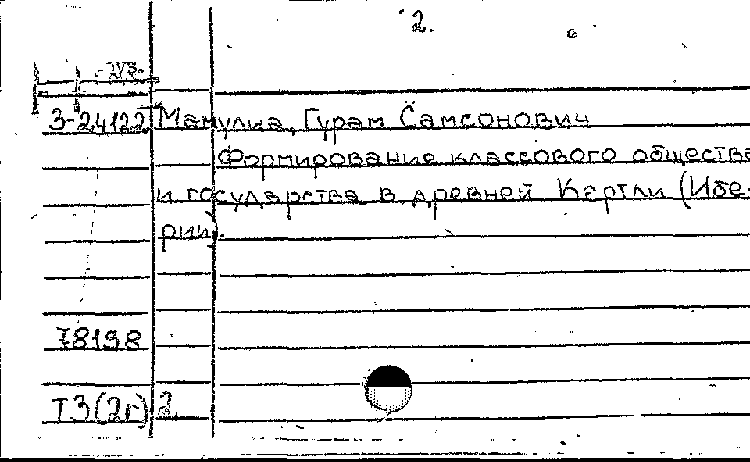 2.
3-24122 Мамулиа, Гурам Самсонович
Формирование классового общества
и государства в древней Картли (Ибе-
рии).
78198
Т3(2г) 2